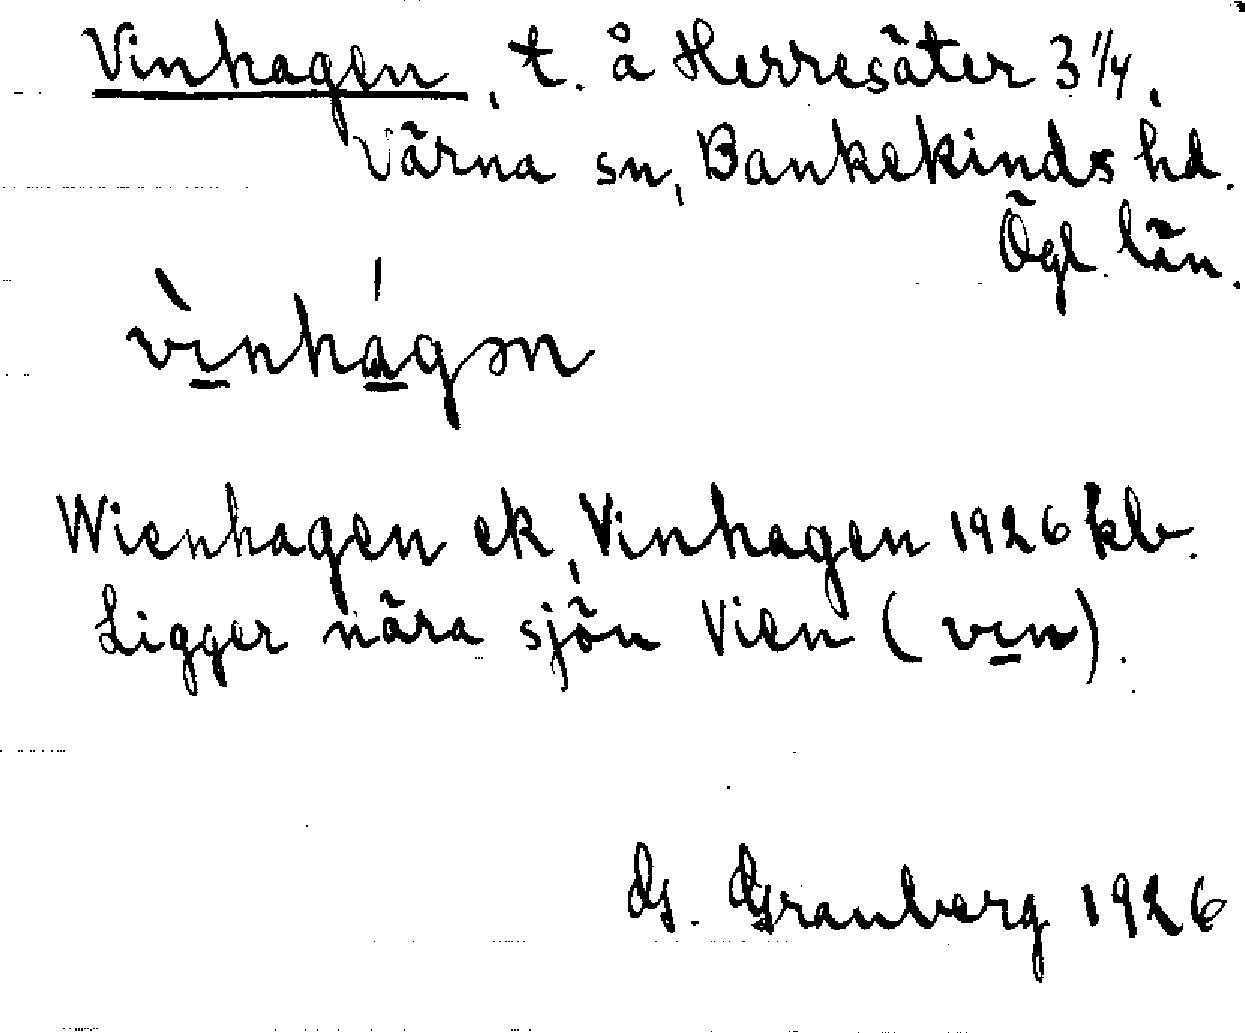 Vinhagen, t. å Herresäter 3 1/4,
Värna sn, Bankekinds hd.
Ögl. län.
vìnhágən
Wienhagen ek, Vinhagen 1926 klv.
Ligger nära sjön Vien (vin).
G. Granberg 1926